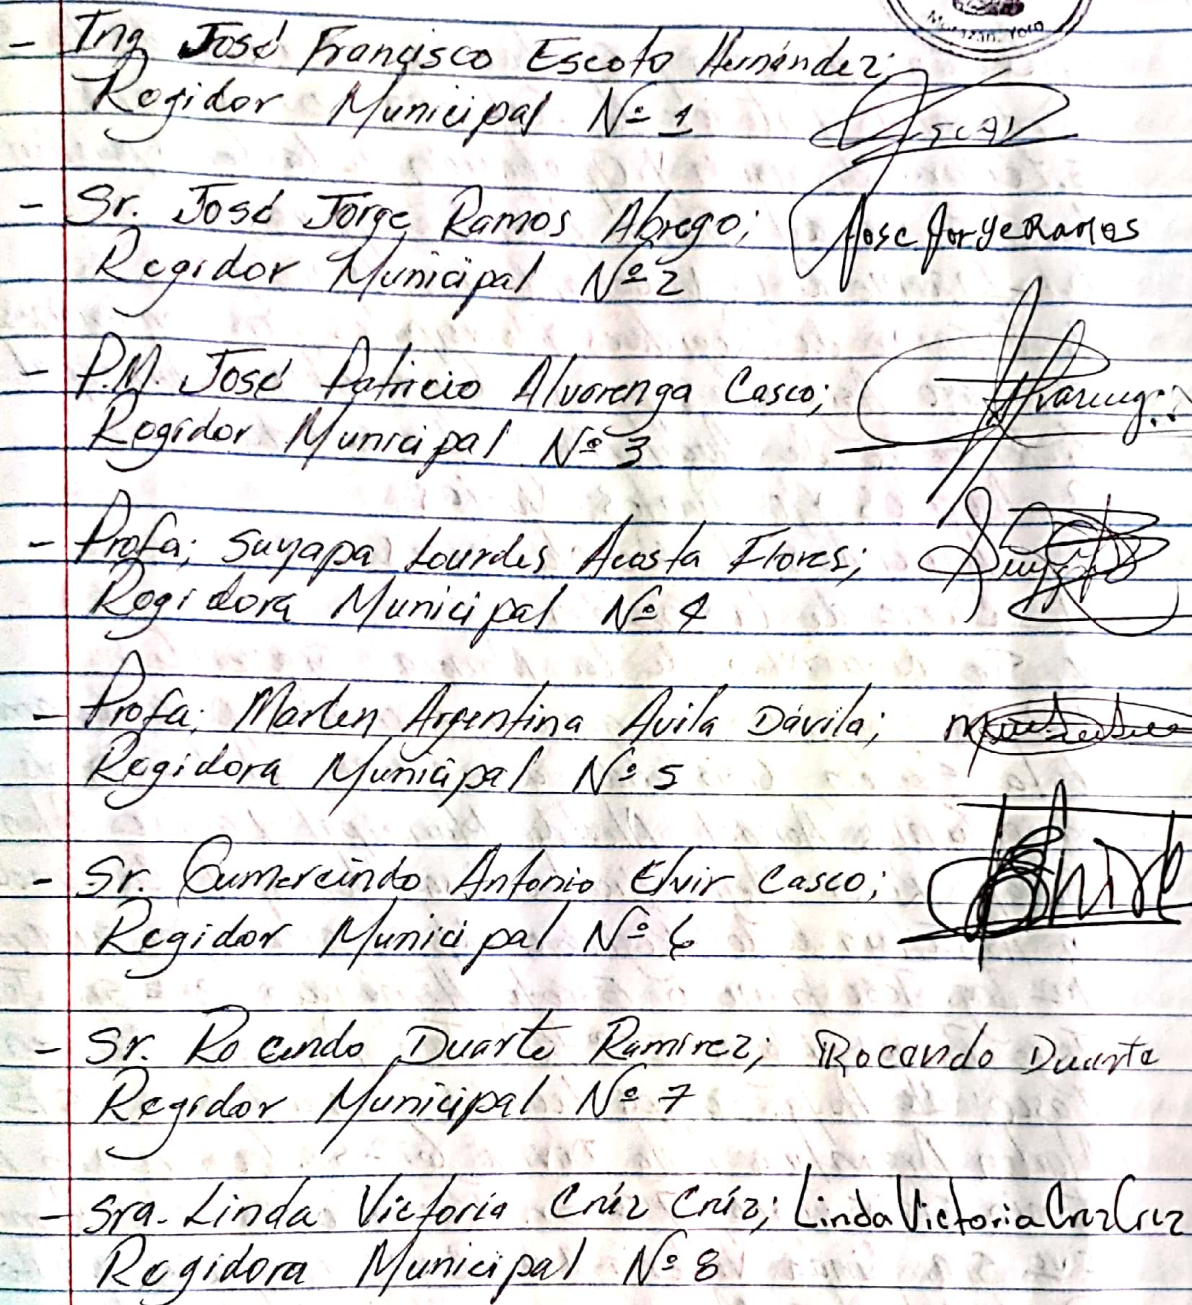 Morazán, Yoro
- Ing José Francisco Escoto Hernández;
Regidor Municipal Nº 1
- Sr. José Jorge Ramos Abrego; Jose Jorge Ramos
Regidor Municipal Nº 2
- P.M. José Patricio Alvarenga Casco;
Regidor Municipal Nº 3
- Profa; Suyapa Lourdes Acosta Flores;
Regidora Municipal Nº 4
- Profa; Marlen Argentina Avila Dávila;
Regidora Municipal Nº 5
- Sr. Gumercindo Antonio Elvir Casco;
Regidor Municipal Nº 6
- Sr. Rocendo Duarte Ramírez; Rocendo Duarte
Regidor Municipal Nº 7
- Sra. Linda Victoria Crúz Crúz; Linda Victoria Cruz Cruz
Regidora Municipal Nº 8